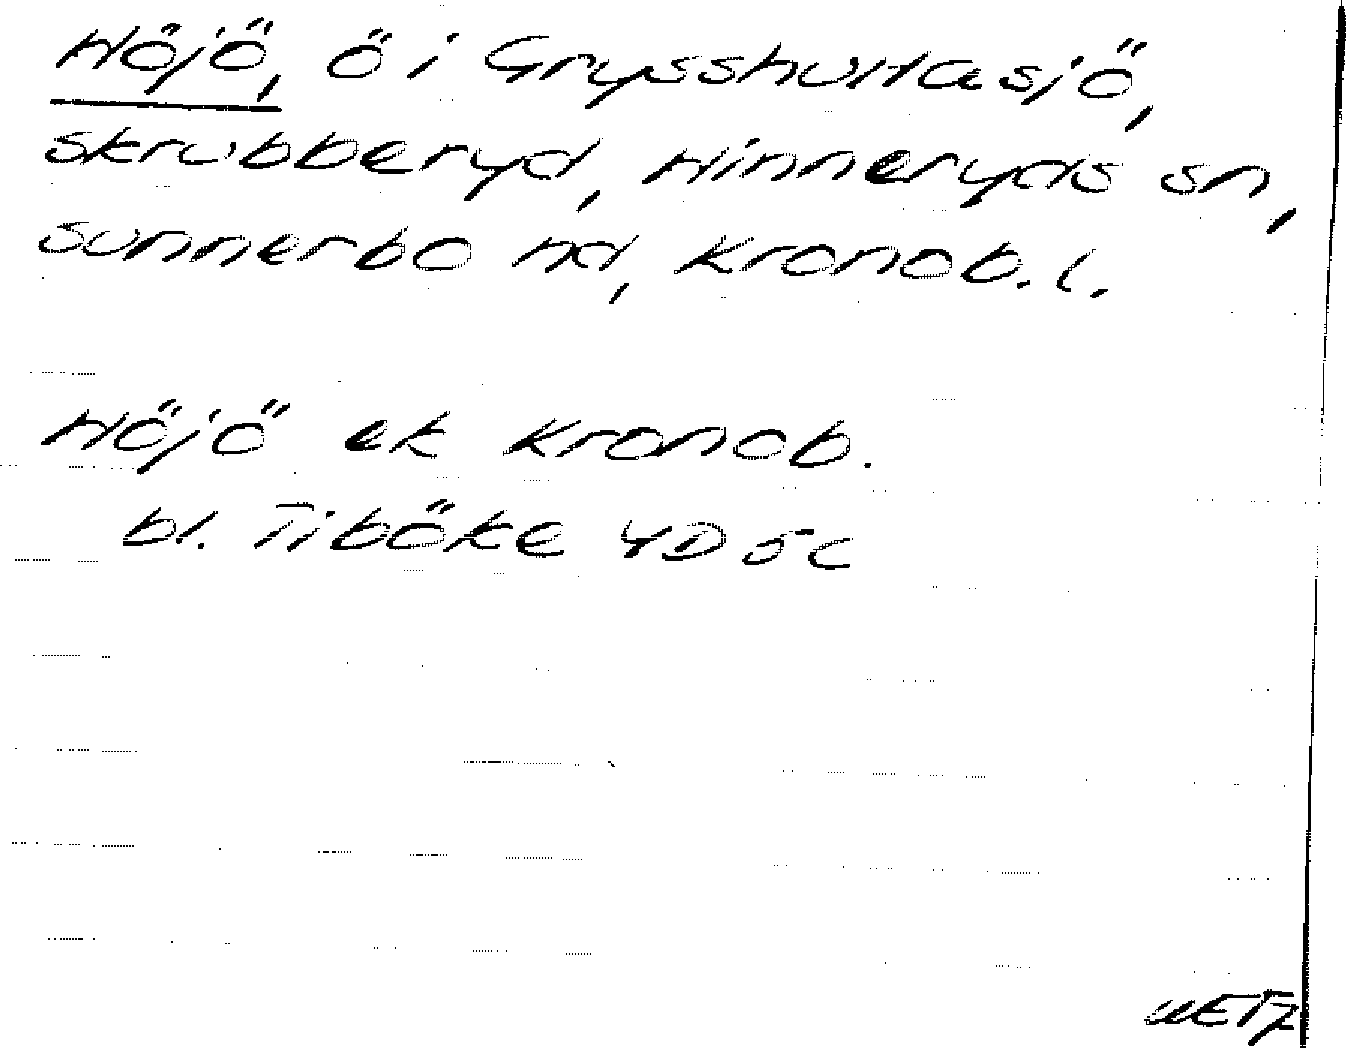 Höjö, ö i Grysshultasjö,
Skrubberyd, Hinneryds sn,
Sunnerbo hd, Kronob. l.
Höjö ek Kronob.
bl. Tiböke 4D 5c